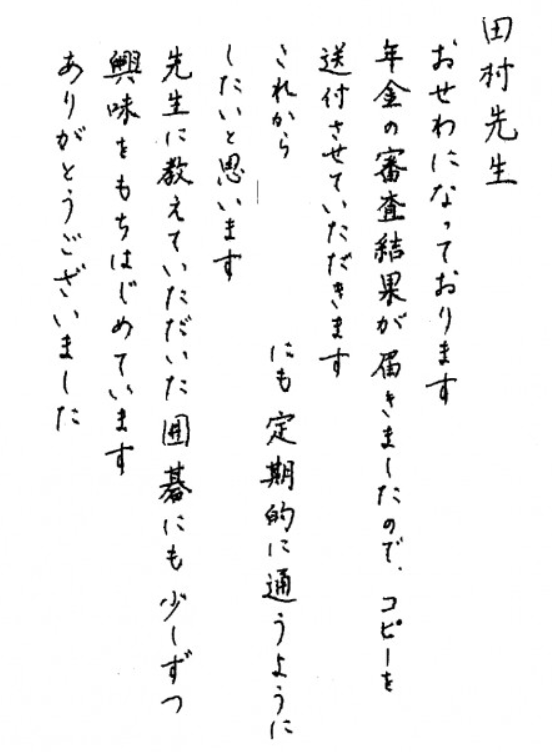 田村先生
おせわになっております
年金の審査結果が届きましたので、コピーを
送付させていただきます
これから　　　　にも定期的に通うように
したいと思います
先生に教えていただいた囲碁にも少しずつ
興味をもちはじめています
ありがとうございました